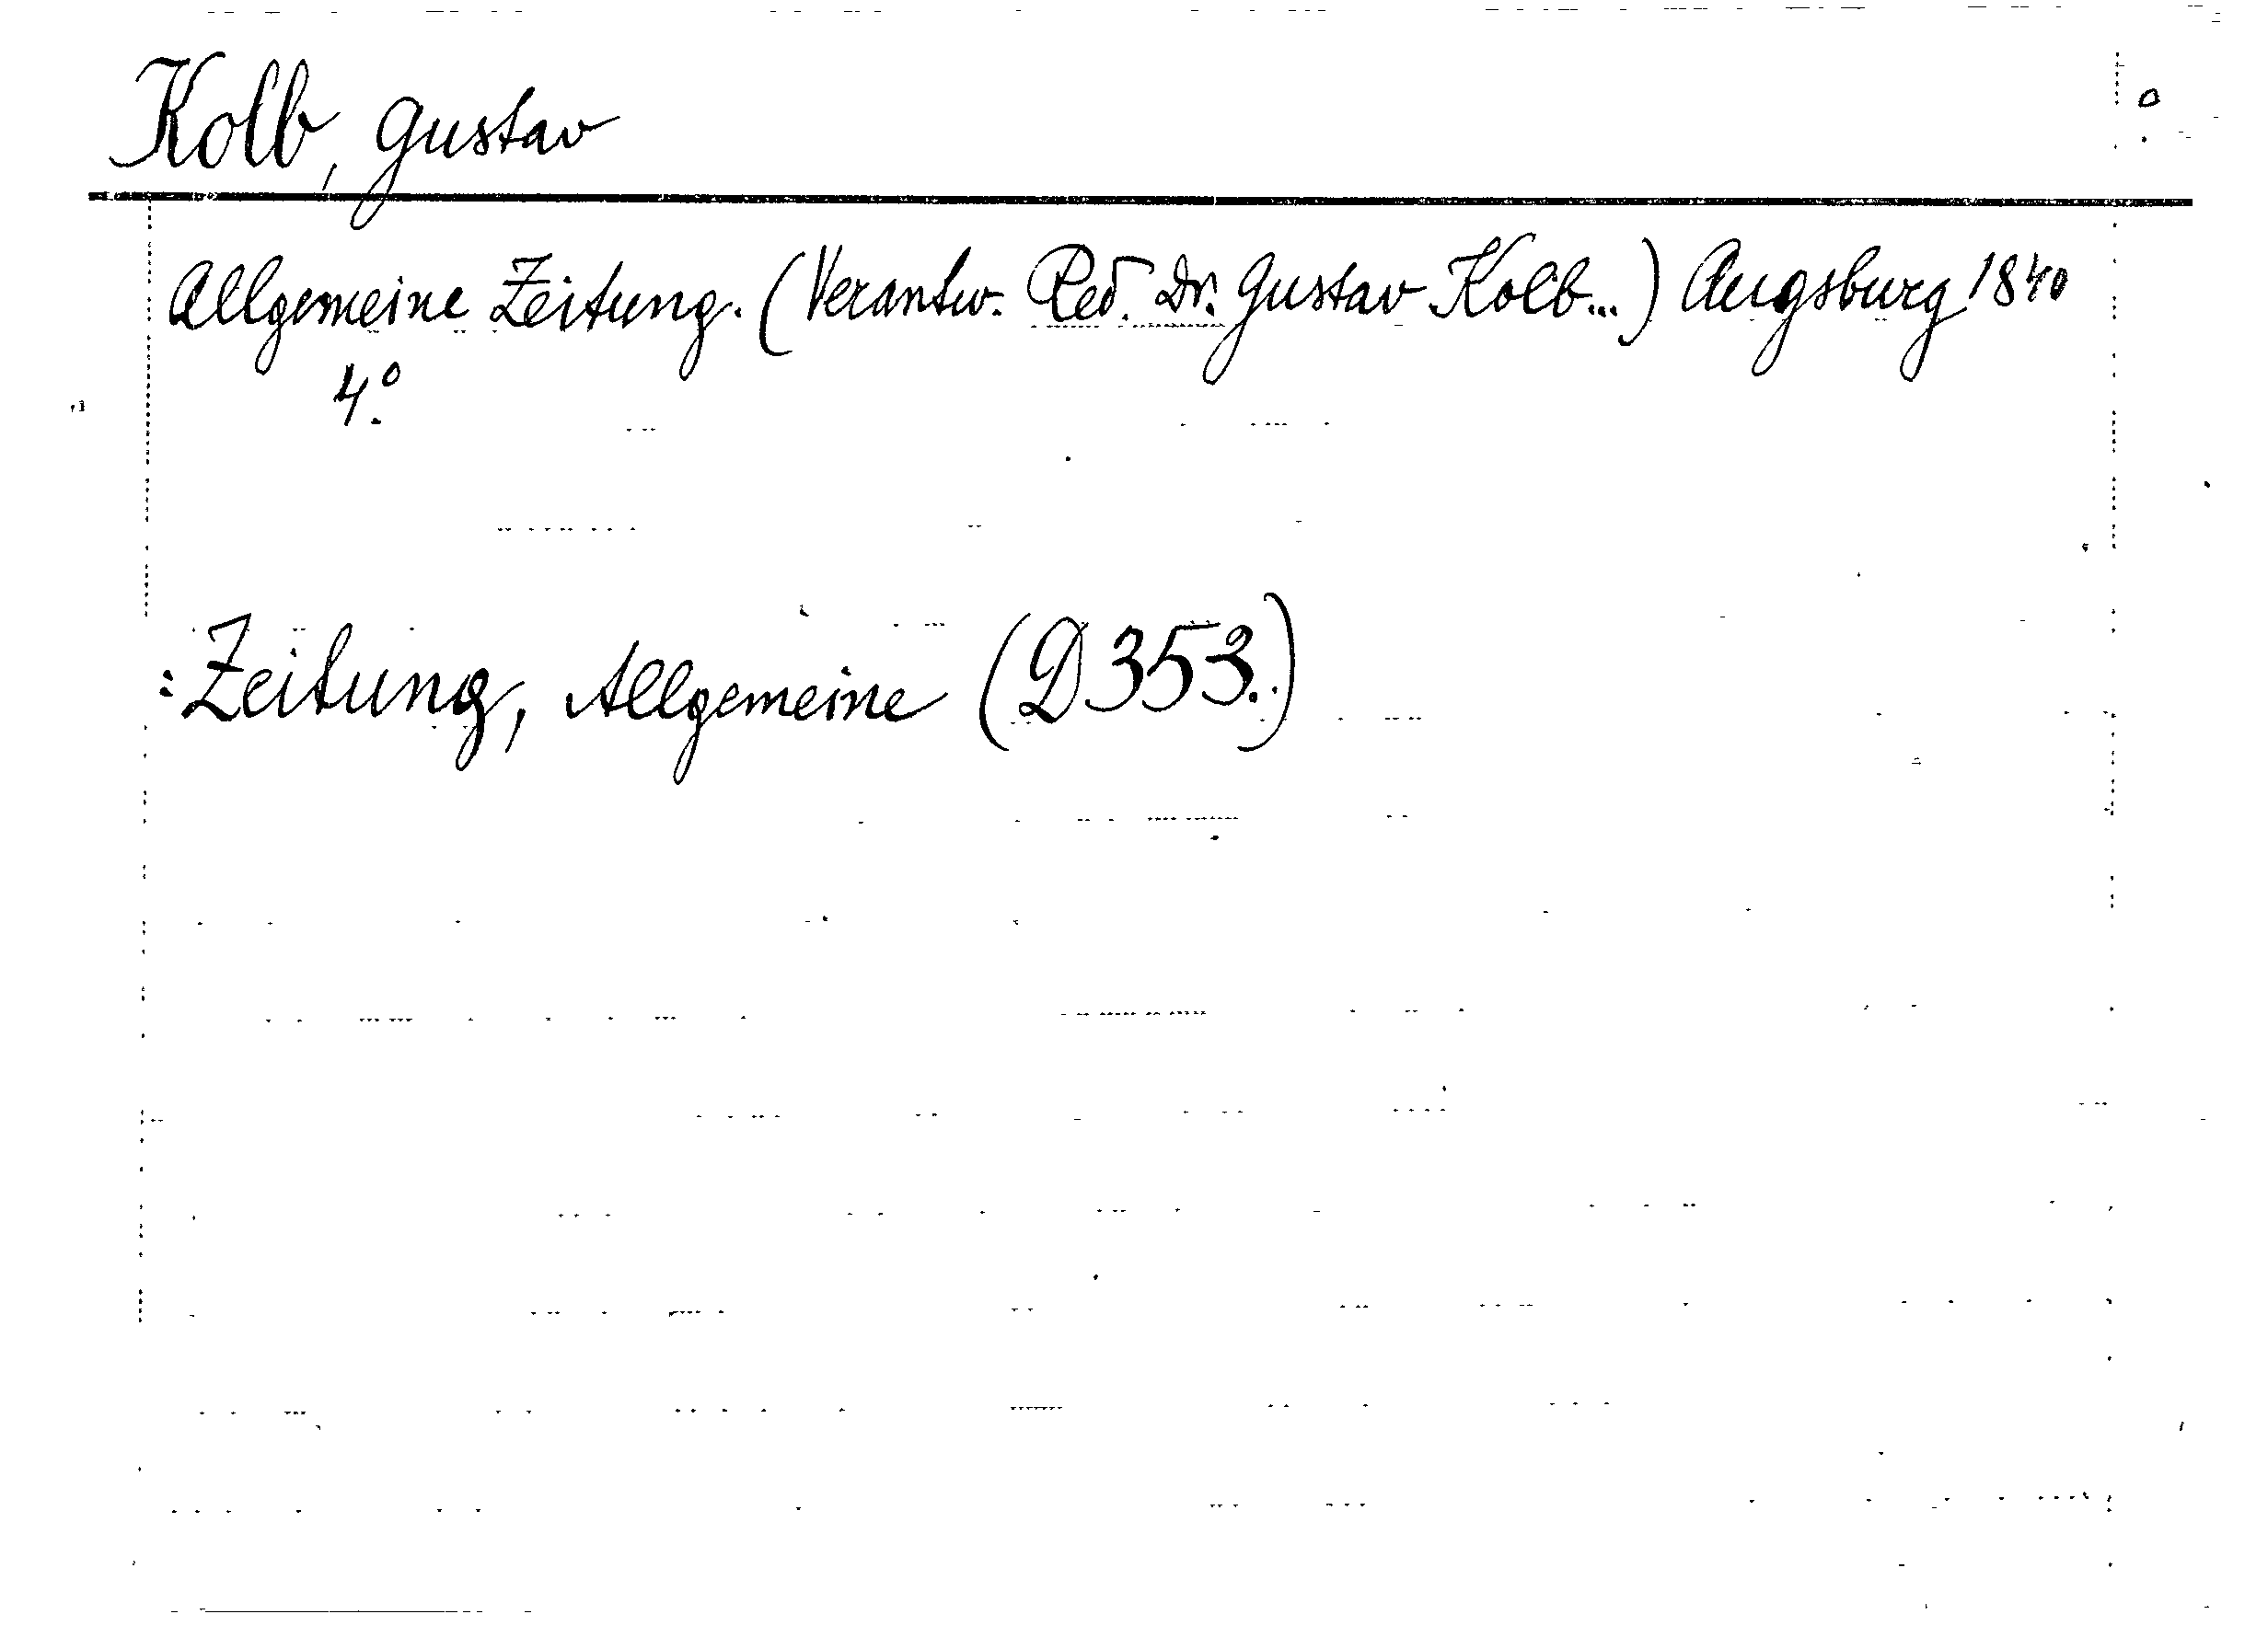 Kolb, Gustav
Allgemeine Zeitung. (Verantw. Red. Dr. Gustav Kolb...) Augsburg 1840
4.º
: Zeitung, Allgemeine (D 353.)